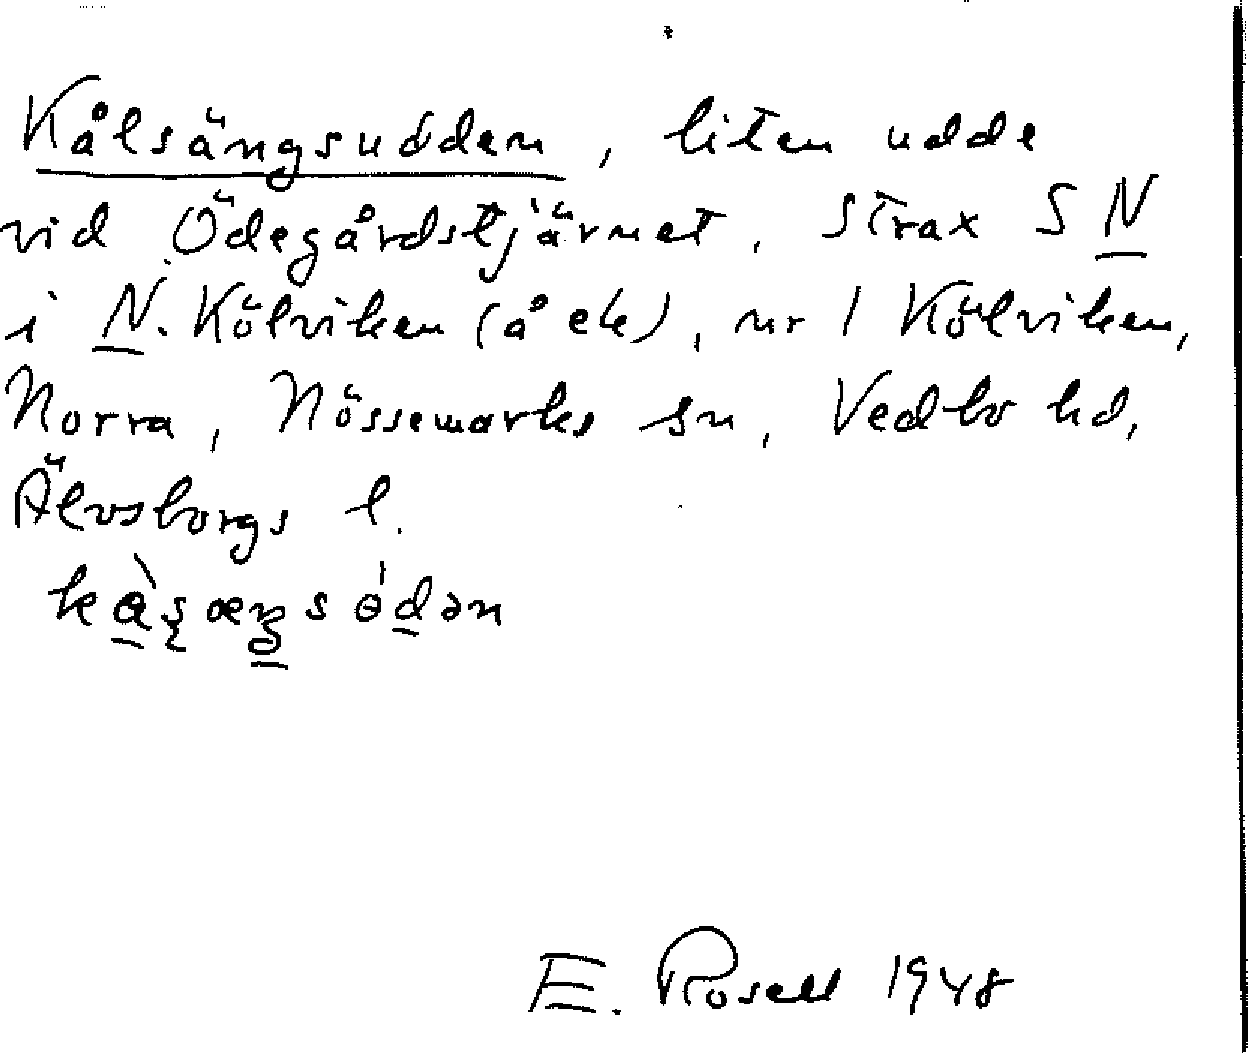 Kålsängsudden, liten udde
vid Ödegårdstjärnet, strax S N
i N. Kölviken (å ek), nr 1 Kölviken,
Norra, Nössemarks sn, Vedbo hd,
Älvsborgs l.
E. Rosell 1948